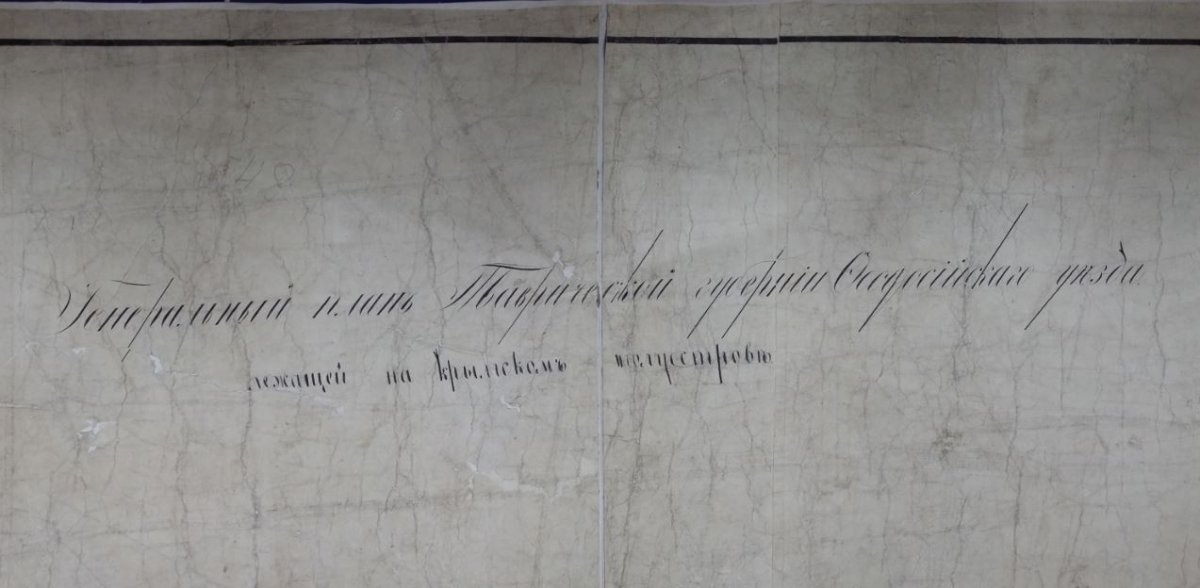 Генеральный планъ Таврической губерніи Ѳеодосійскаго уѣзда
лежащей на Крымскомъ полуостровѣ